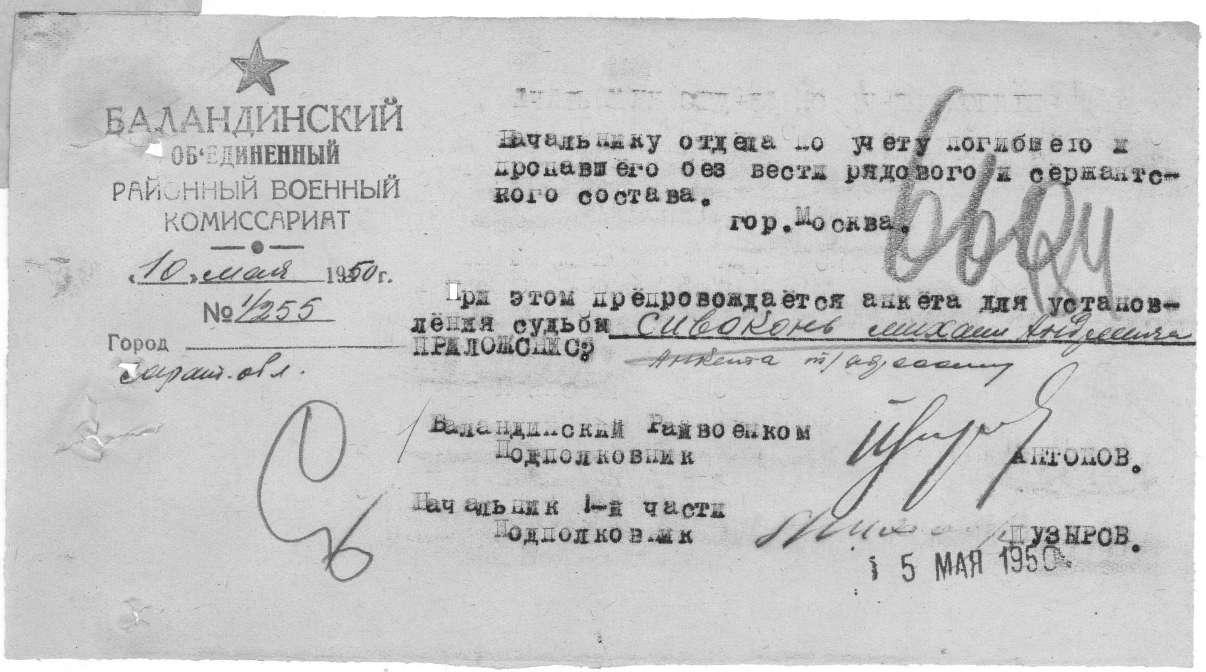 БАЛАНДИНСКИЙ
ОБ'ЕДИНЕННЫЙ
РАЙОННЫЙ ВОЕННЫЙ
КОМИССАРИАТ
"10" мая 1950 г.
№ 1/255
Город
Сарат. обл.
Начальнику отдела по учету погибшего и
пропавшего без вести рядового и сержантс-
кого состава.
гор. Москва.
При этом препровождается анкета для установ-
ления судьбы Сивоконь Михаил Андреевича
ПРИЛОЖЕНИЕ:
Анкета т/адресату
Баландинский Райвоенком
Подполковник АНТОНОВ.
Начальник 1-й части
Подполковник ПУЗЫРОВ.
15 МАЯ 1950